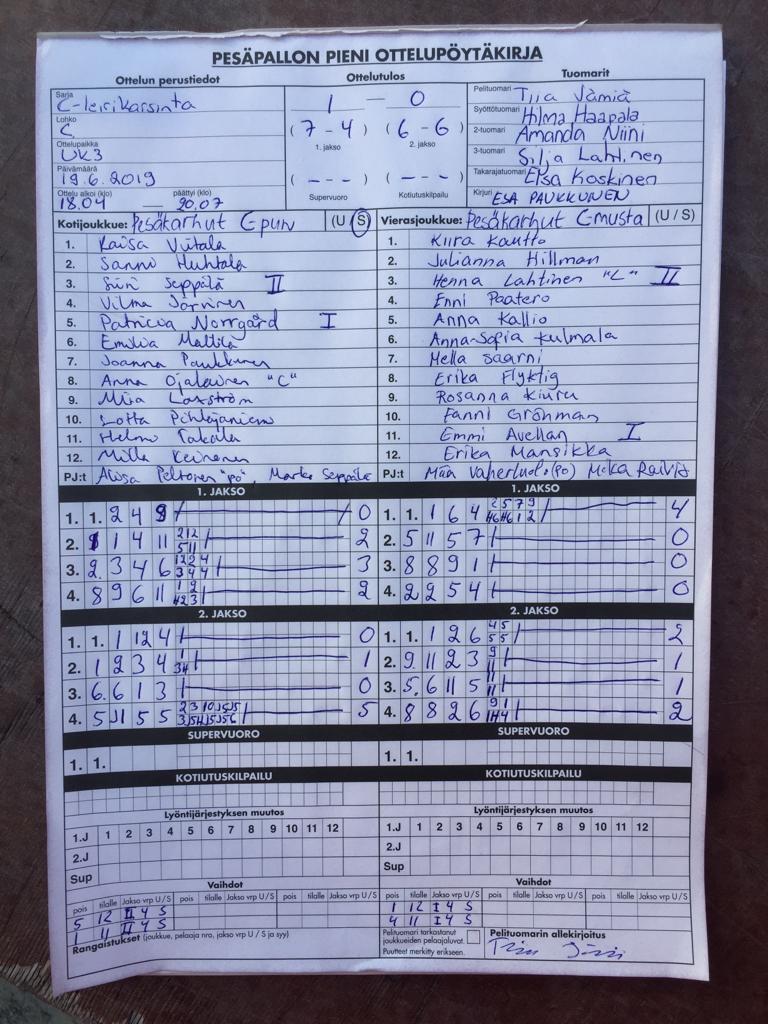 PESÄPALLON PIENI OTTELUPÖYTÄKIRJA
Ottelun perustiedot Ottelutulos Tuomarit
Sarja C-leirikarsinta
Lohko C
Ottelupaikka UK3
Päivämäärä 19.6.2019
Ottelu alkoi (klo) 18.04 — päättyi (klo) 20.07
1 — 0
(7-4) (6-6)
1. jakso 2. jakso
(---) (---)
Supervuoro Kotiutuskilpailu
Pelituomari Tiia Jämiä
Syöttötuomari Hilma Haapala
2-tuomari Amanda Niini
3-tuomari Silja Lahtinen
Takarajatuomari Elsa Koskinen
Kirjuri ESA PAUKKUNEN
Kotijoukkue: Pesäkarhut C pun (U / S)
1. Kaisa Viitala
2. Sanni Huhtala
3. Siiri Seppälä II
4. Vilma Järvinen
5. Patricia Norrgård I
6. Emilia Mattila
7. Joanna Paukkunen
8. Anna Ojalainen "C"
9. Miia Laxström
10. Lotta Pihlajaniemi
11. Helmi Takala
12. Milla Keinonen
PJ:t Alisa Peltonen "PÖ", Marko Seppälä
Vierasjoukkue: Pesäkarhut C musta (U / S)
1. Kiira Kautto
2. Julianna Hillman
3. Henna Lahtinen "L" II
4. Enni Paatero
5. Anna Kallio
6. Anna-Sofia Kulmala
7. Mella Saarni
8. Erika Flyktig
9. Rosanna Kiuru
10. Fanni Gröhman
11. Emmi Avellan I
12. Erika Mansikka
PJ:t (PÖ) Mika
1. JAKSO
1. 1. 2 4 9 0
2. 1 1 4 11 2
3. 2. 3 4 6 3
4. 8 9 6 11 2
2. JAKSO
1. 1. 1 12 4 0
2. 1 2 3 4 1
3. 6. 6 1 3 0
4. 5 11 5 5 5
SUPERVUORO
1. 1.
KOTIUTUSKILPAILU
1. JAKSO
1. 1. 1 6 4 4
2. 5 11 5 7 0
3. 8 8 9 1 0
4. 2 2 5 4 0
2. JAKSO
1. 1. 1 2 6 2
2. 9 11 2 3 1
3. 5. 6 11 5 1
4. 8 8 2 6 2
SUPERVUORO
1. 1.
KOTIUTUSKILPAILU
Lyöntijärjestyksen muutos
1.J 1 2 3 4 5 6 7 8 9 10 11 12
2.J
Sup
Vaihdot
pois tilalle Jakso vrp U / S pois tilalle Jakso vrp U / S pois tilalle Jakso vrp U / S
5 12 II 4 S
1 11 II 4 S
Rangaistukset (joukkue, pelaaja nro, jakso vrp U / S ja syy)
Lyöntijärjestyksen muutos
1.J 1 2 3 4 5 6 7 8 9 10 11 12
2.J
Sup
Vaihdot
pois tilalle Jakso vrp U / S pois tilalle Jakso vrp U / S pois tilalle Jakso vrp U / S
1 12 I 4 S
4 11 I 4 S
Pelituomari tarkastanut
joukkueiden pelaajaluvat.
Puutteet merkitty erikseen.
Pelituomarin allekirjoitus